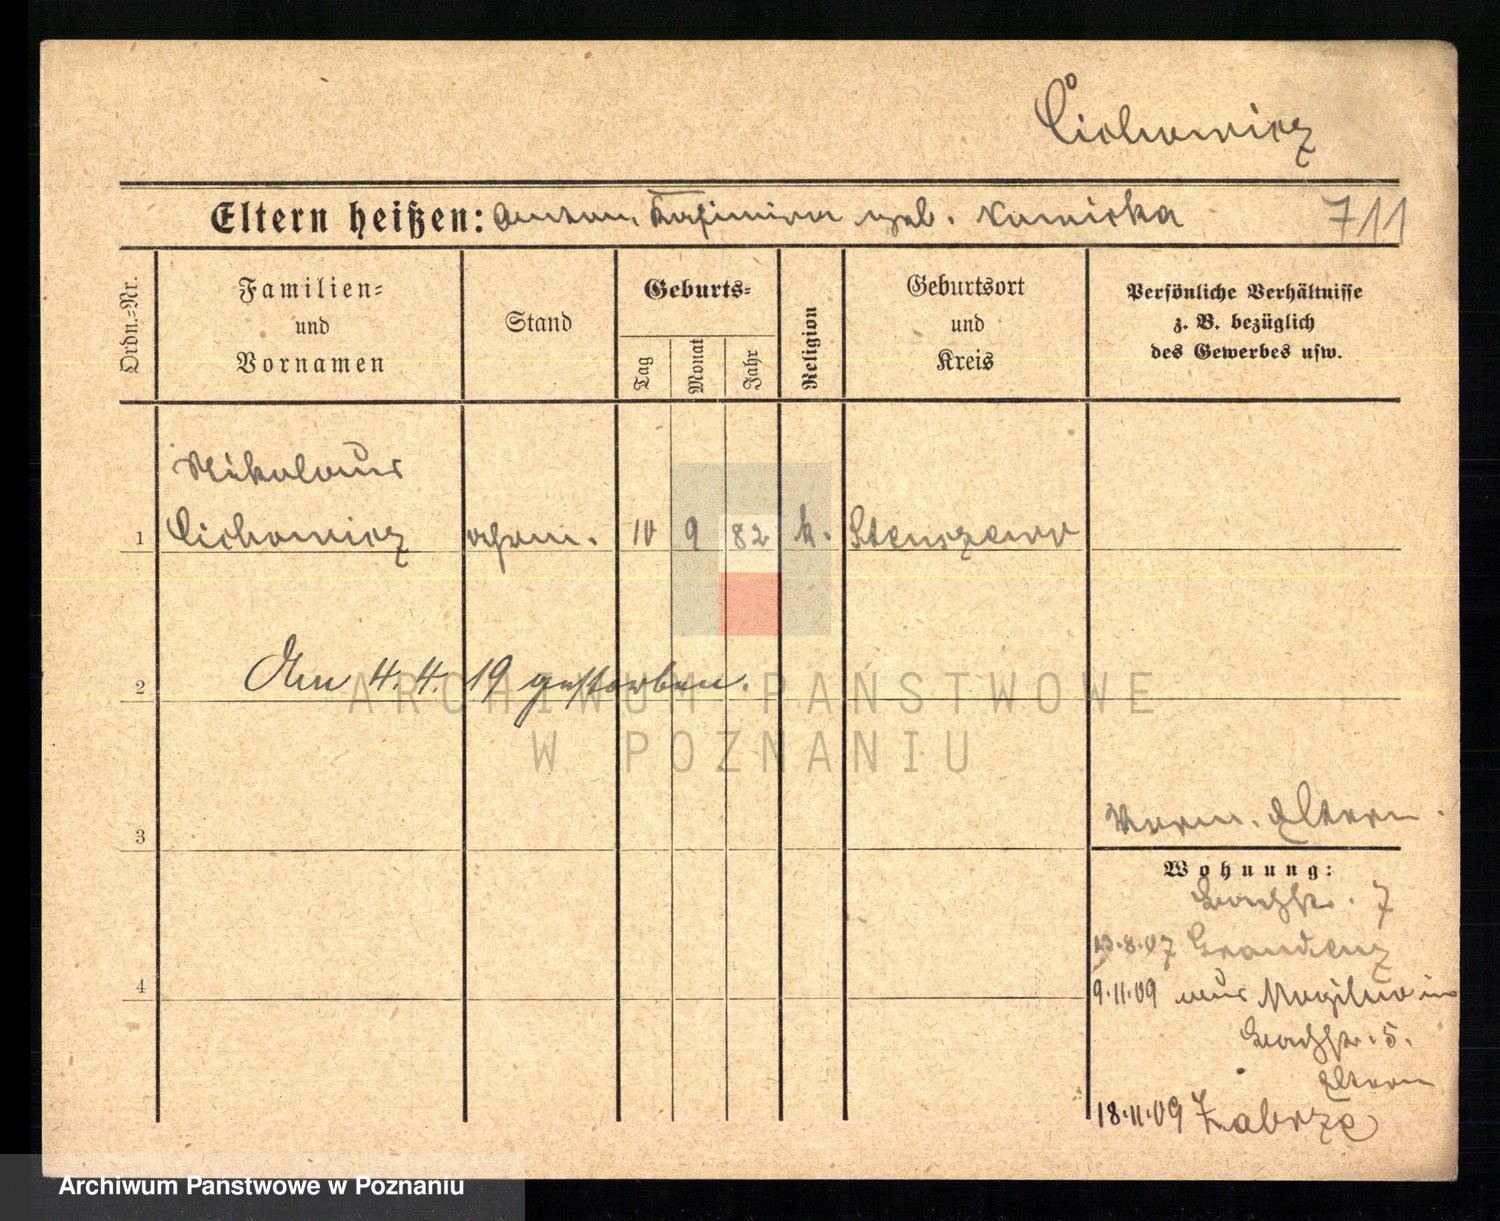 Cichowicz
Eltern heißen: Anton, Kasimira geb. Kamieka 711
Ordn.-Nr.
Familien-
und
Vornamen
Stand
Geburts-
Tag
Monat
Jahr
Religion
Geburtsort
und
Kreis
Persönliche Verhältnisse
z. B. bezüglich
des Gewerbes usw.
Nikolaus
1 Cichowicz 10 9 82 k. Stenszewo
2 Am 4. 4. 19 gestorben.
3
Eltern.
Wohnung:
Bachstr. 7
13.8.07 Graudenz
4
9.11.09 aus Mogilno in
Bachstr. 5.
Eltern
18.11.09 Zabrze
ARCHIWUM PAŃSTWOWE
W POZNANIU
Archiwum Państwowe w Poznaniu